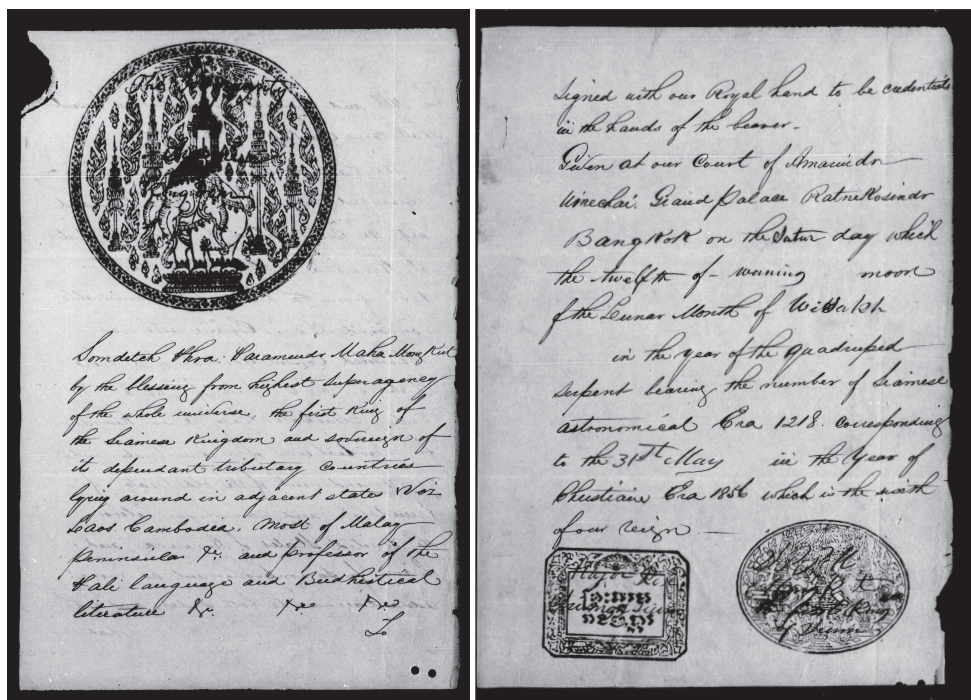 The
Somdetch Phra: Paramendr Maha Mongkut
by the blessing from highest superagency
of the whole universe, the first King of
the Siamese Kingdom and sovereign of
its dependant tributary countries
lying around in adjacent state Viz
Laos Cambodia, Most of Malay
Peninsular &c: and professor of the
Pali language and Budhistical
literature &c &c &c
To
Signed with our Royal hand to be credentials
in the hands of the bearer-
Given at our Court of Amarindr
Winechai, Grand Palace Ratnekosindr
Bangkok on the day which
the twelfth of - waning moon
of the Lunar Month of
in the year of the quadruped
serpent bearing the number of Siamese
astronomical Era 1218. corresponding
to the 31st May in the Year of
Christian Era 1856 which is the sixth
of our reign -
Major Rex
King
of Siam